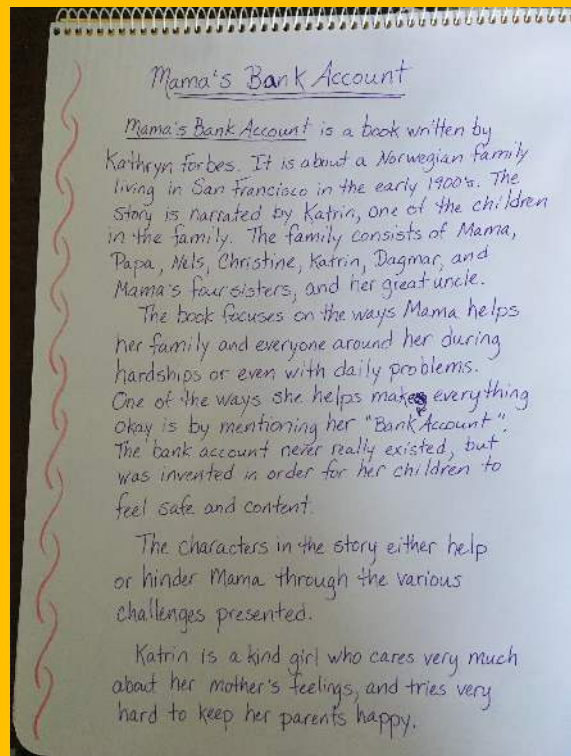 Mama's Bank Account
Mama's Bank Account is a book written by
Kathryn Forbes. It is about a Norwegian family
living in San Francisco in the early 1900's. The
story is narrated by Katrin, one of the children
in the family. The family consists of Mama,
Papa, Nels, Christine, Katrin, Dagmar, and
Mama's four sisters, and her great uncle.
The book focuses on the ways Mama helps
her family and everyone around her during
hardships or even with daily problems.
One of the ways she helps make everything
okay is by mentioning her "Bank Account".
The bank account never really existed, but
was invented in order for her children to
feel safe and content.
The characters in the story either help
or hinder Mama through the various
challenges presented.
Katrin is a kind girl who cares very much
about her mother's feelings, and tries very
hard to keep her parents happy.